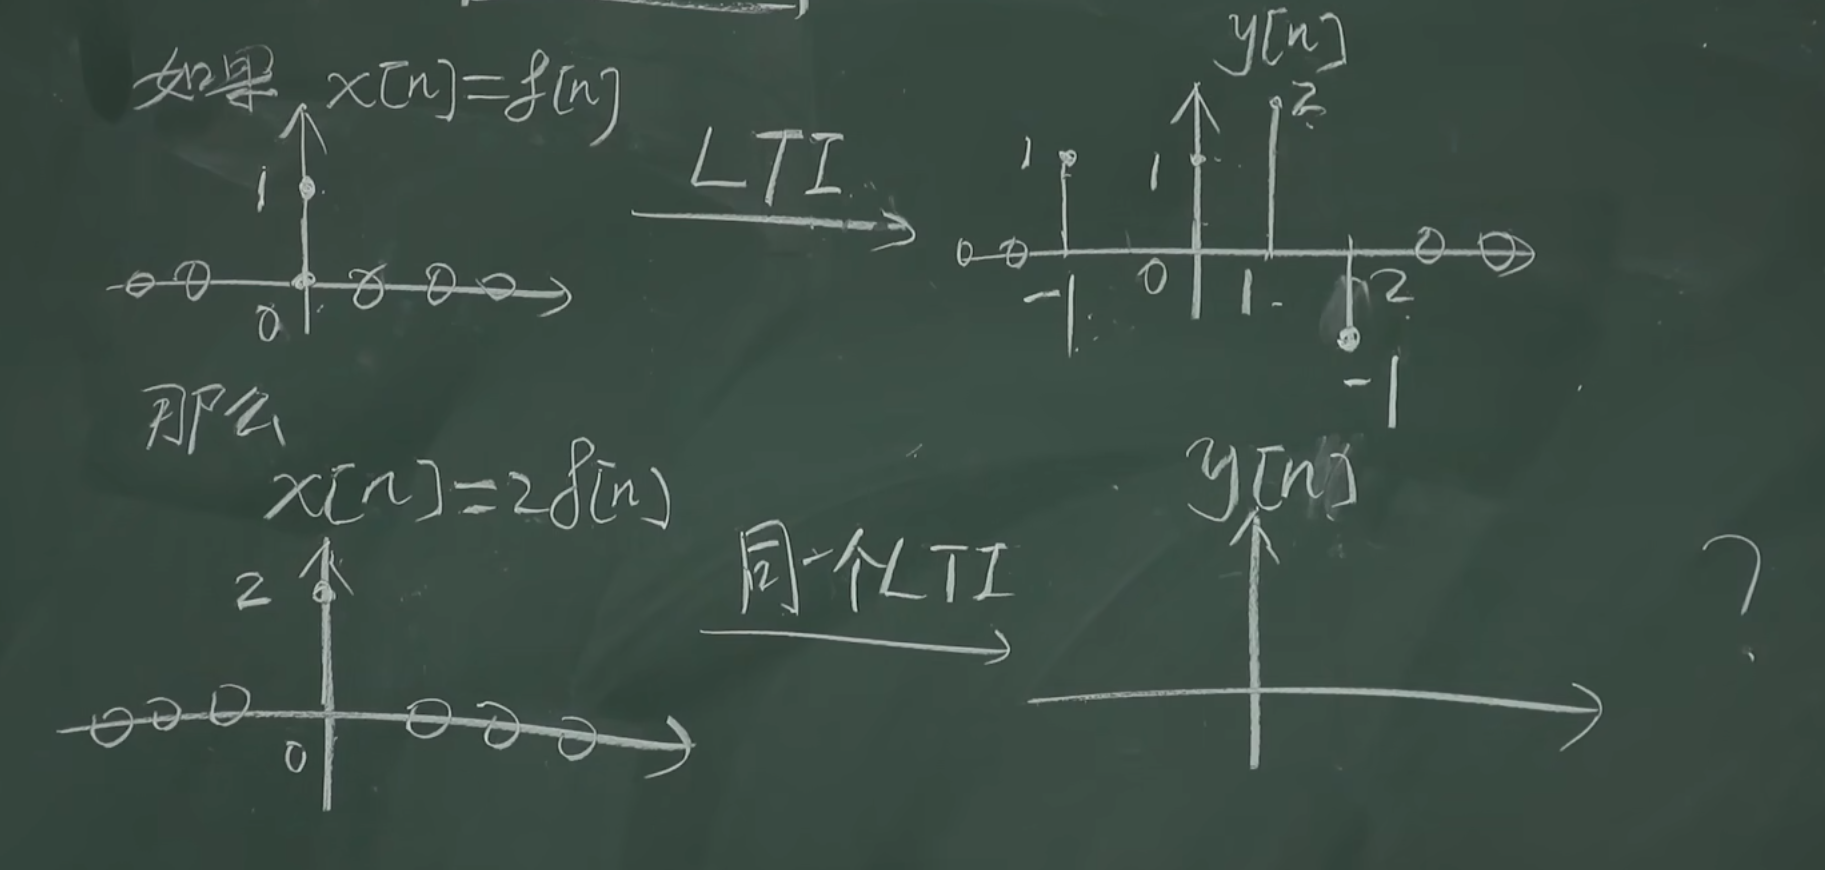 如果 x[n]=δ[n]
1
0
LTI
y[n]
2
1
1
-1
0
1
2
-1
那么
x[n]=2δ[n]
2
0
同一个LTI
y[n]
?